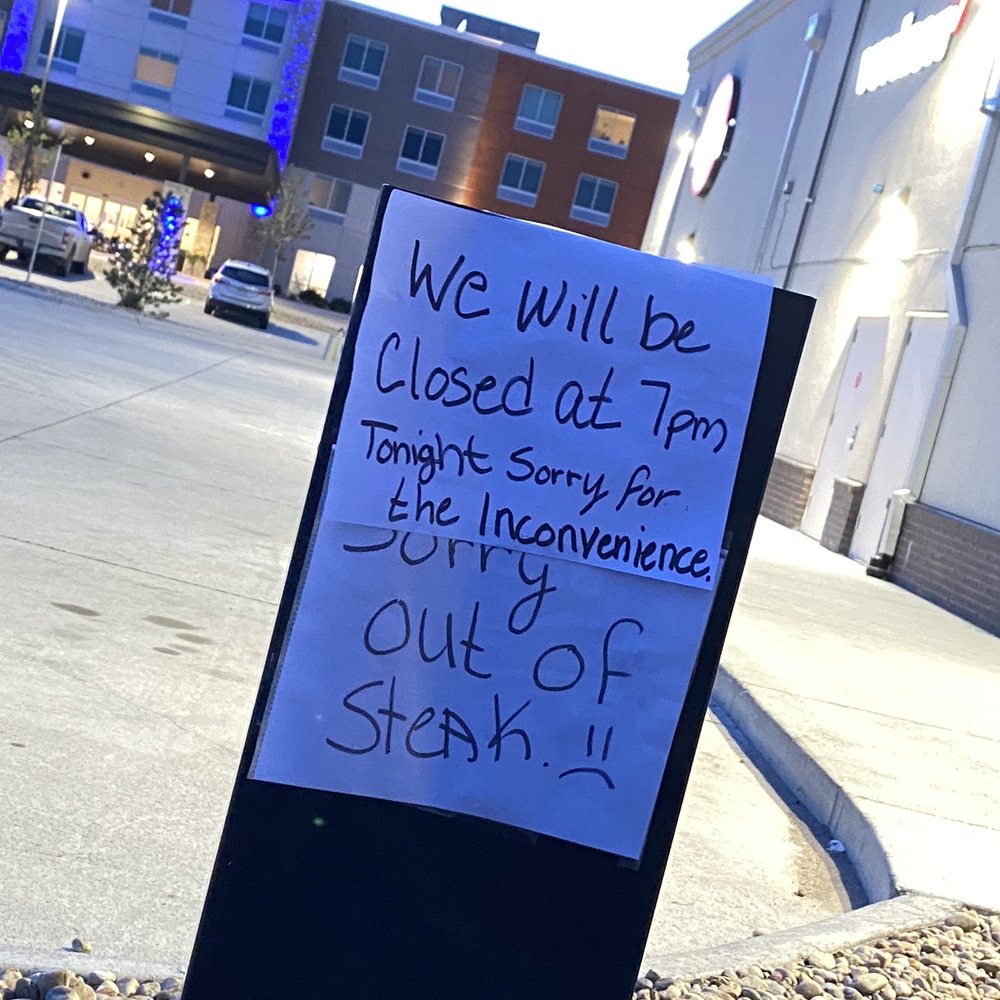 We will be
Closed at 7pm
Tonight Sorry for
the Inconvenience.
Sorry
out of
Steak. :(